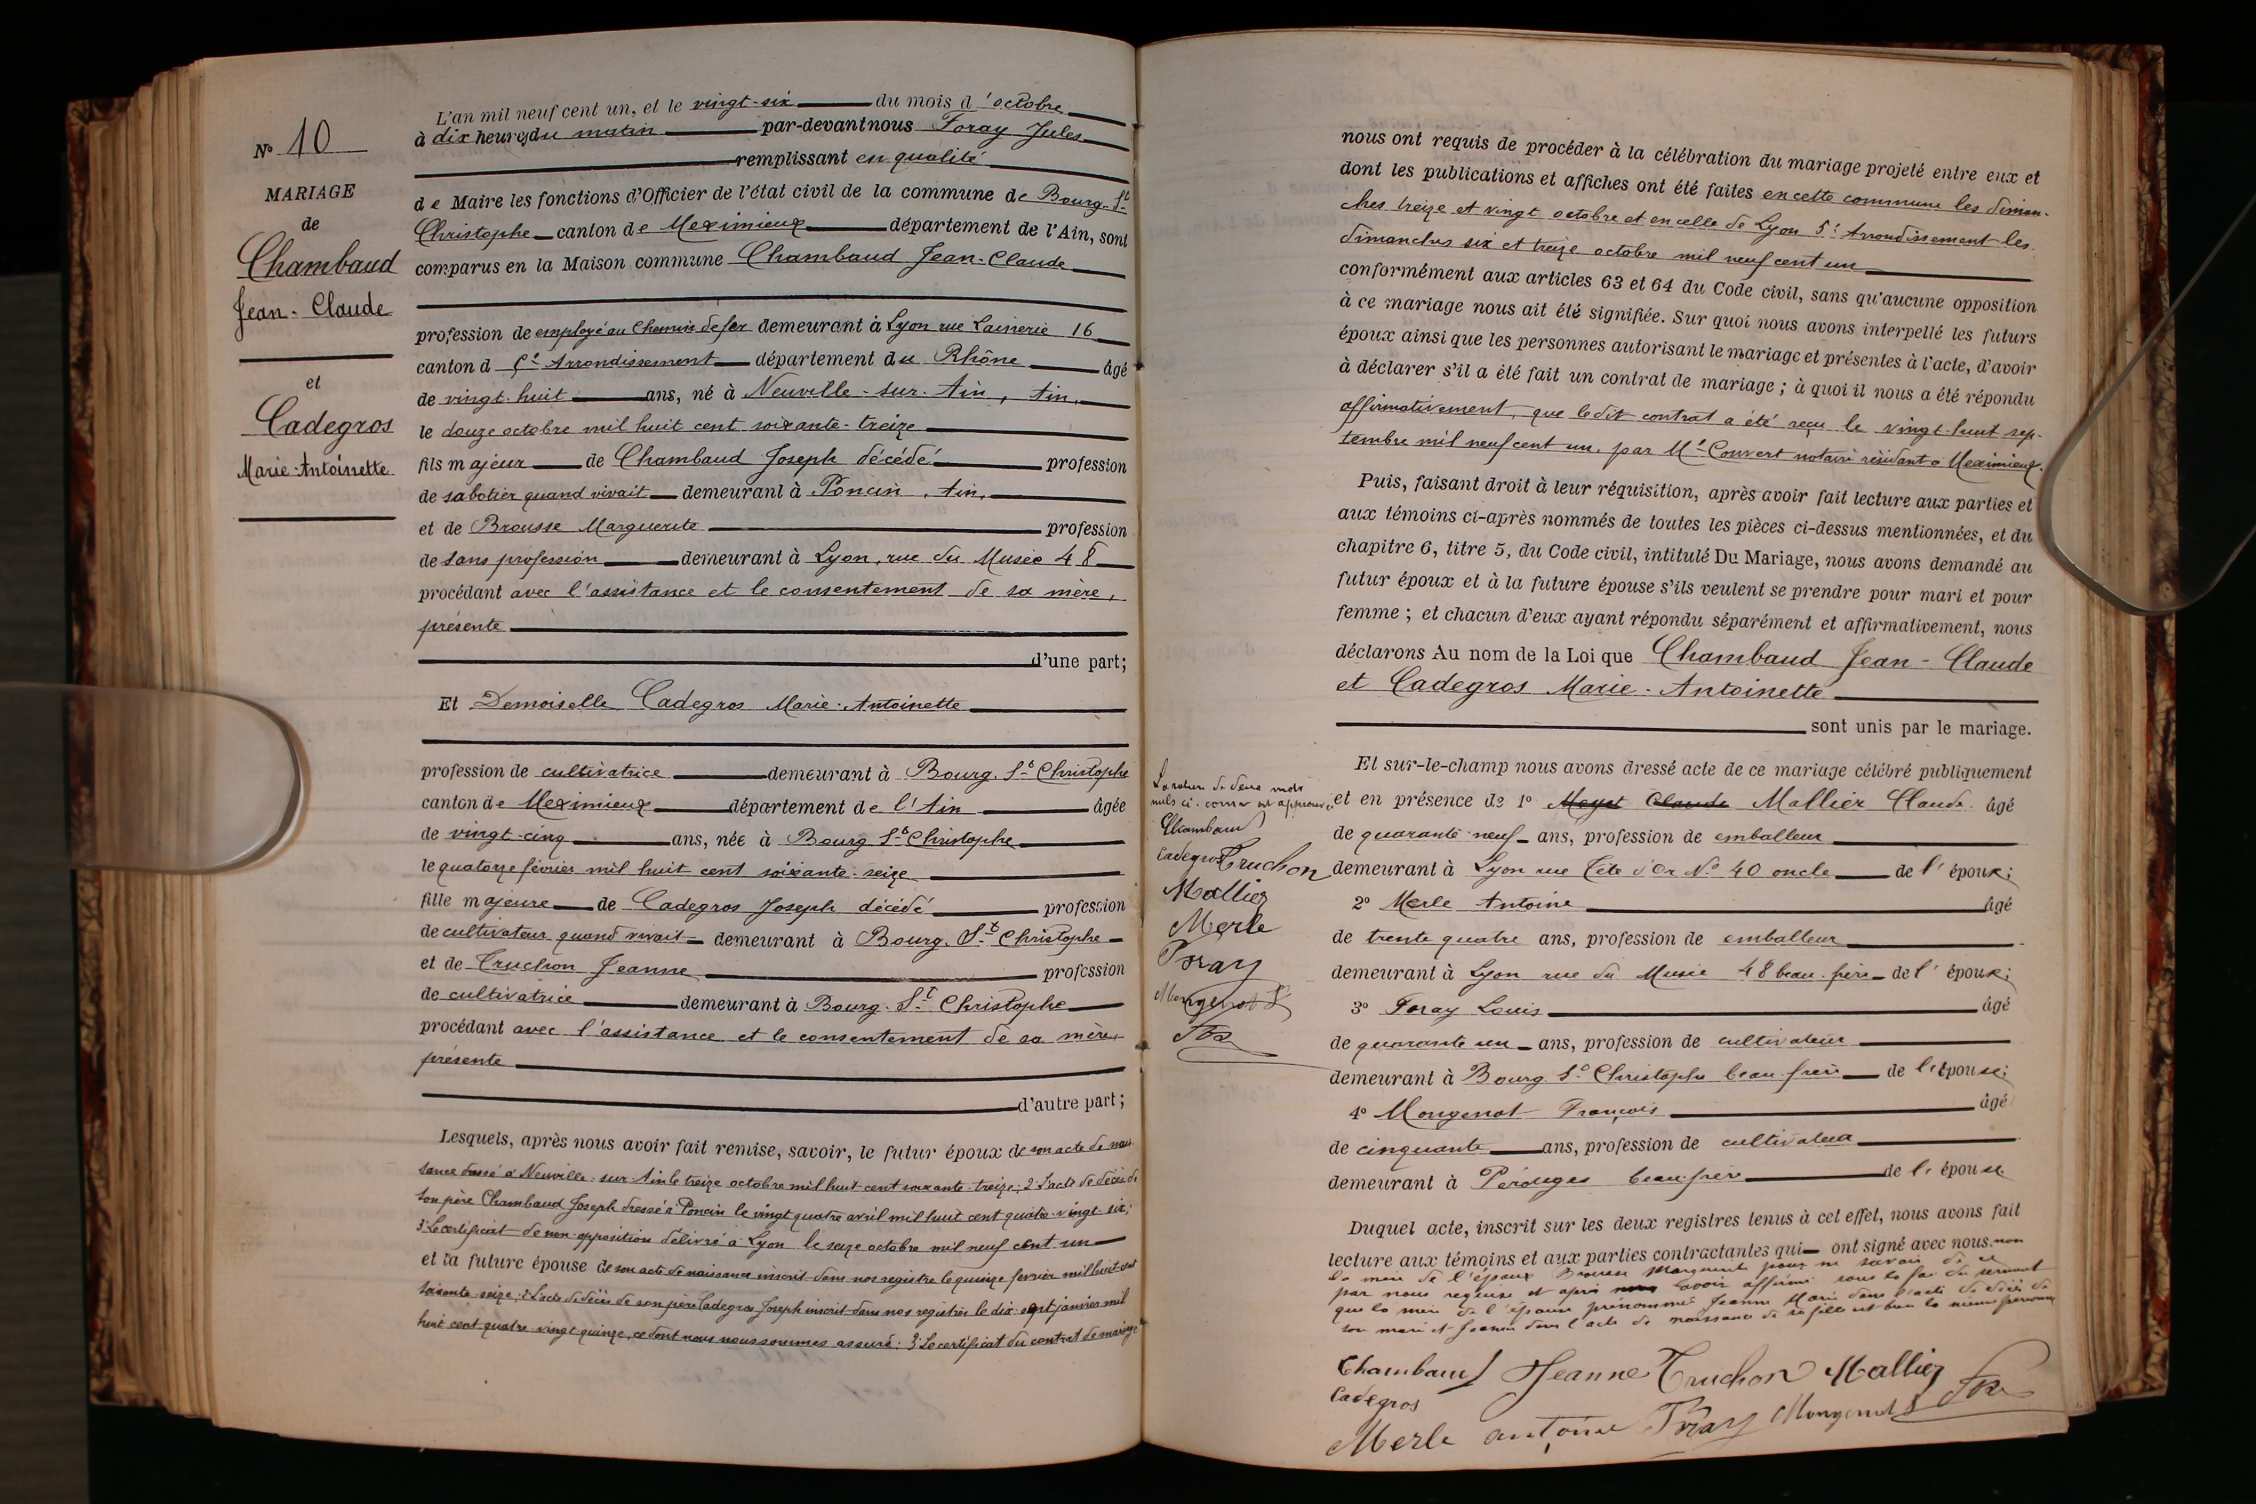 N° 10
MARIAGE
de
Chambaud
Jean-Claude
et
Cadegros
Marie-Antoinette
L'an mil neuf cent un, et le vingt-six du mois d'octobre
à dix heures du matin par-devant nous Foray Jules
remplissant en qualité
de Maire les fonctions d'Officier de l'état civil de la commune de Bourg-St
Christophe canton de Meximieux département de l'Ain, sont
comparus en la Maison commune Chambaud Jean-Claude
profession de employé au Chemin de fer demeurant à Lyon rue Lainerie 16
canton d 5e Arrondissement département du Rhône âgé
de vingt-huit ans, né à Neuville-sur-Ain, Ain,
le douze octobre mil huit cent soixante-treize
fils majeur de Chambaud Joseph décédé profession
de sabotier quand vivait demeurant à Poncin, Ain,
et de Brousse Marguerite profession
de sans profession demeurant à Lyon, rue du Musée 48
procédant avec l'assistance et le consentement de sa mère,
présente
d'une part;
Et Demoiselle Cadegros Marie-Antoinette
profession de cultivatrice demeurant à Bourg-St Christophe
canton de Meximieux département de l'Ain âgée
de vingt-cinq ans, née à Bourg St Christophe
le quatorze février mil huit cent soixante-seize
fille majeure de Cadegros Joseph décédé profession
de cultivateur quand vivait demeurant à Bourg-St Christophe
et de Truchon Jeanne profession
de cultivatrice demeurant à Bourg-St Christophe
procédant avec l'assistance et le consentement de sa mère,
présente
d'autre part;
Lesquels, après nous avoir fait remise, savoir, le futur époux de son acte de nais-
sance dressé à Neuville-sur-Ain le treize octobre mil huit cent soixante-treize; 2° L'acte de décès de
son père Chambaud Joseph dressé à Poncin le vingt quatre avril mil huit cent quatre-vingt-six;
3° Le certificat de non-opposition délivré à Lyon le seize octobre mil neuf cent un
et la future épouse de son acte de naissance inscrit dans nos registre le quinze février mil huit cent
soixante-seize; 2° L'acte de décès de son père Cadegros Joseph inscrit dans nos registres le dix-sept janvier mil
huit cent quatre-vingt quinze, ce dont nous nous sommes assuré; 3° Le certificat du contrat de mariage
nous ont requis de procéder à la célébration du mariage projeté entre eux et
dont les publications et affiches ont été faites en cette commune les diman-
ches treize et vingt octobre et en celle de Lyon 5e Arrondissement les
dimanches six et treize octobre mil neuf cent un
conformément aux articles 63 et 64 du Code civil, sans qu'aucune opposition
à ce mariage nous ait été signifiée. Sur quoi nous avons interpellé les futurs
époux ainsi que les personnes autorisant le mariage et présentes à l'acte, d'avoir
à déclarer s'il a été fait un contrat de mariage; à quoi il nous a été répondu
affirmativement, que le dit contrat a été reçu le vingt-huit sep-
tembre mil neuf cent un, par Me Convert notaire résidant à Meximieux.
Puis, faisant droit à leur réquisition, après avoir fait lecture aux parties et
aux témoins ci-après nommés de toutes les pièces ci-dessus mentionnées, et du
chapitre 6, titre 5, du Code civil, intitulé Du Mariage, nous avons demandé au
futur époux et à la future épouse s'ils veulent se prendre pour mari et pour
femme; et chacun d'eux ayant répondu séparément et affirmativement, nous
déclarons Au nom de la Loi que Chambaud Jean-Claude
et Cadegros Marie-Antoinette
sont unis par le mariage.
Et sur-le-champ nous avons dressé acte de ce mariage célébré publiquement
et en présence de 1° Meyet Claude Mallier Claude âgé
de quarante neuf ans, profession de emballeur
demeurant à Lyon rue Tête d'Or N° 40 oncle de l'époux;
2° Merle Antoine âgé
de trente quatre ans, profession de emballeur
demeurant à Lyon rue du Musée 48 beau-frère de l'époux;
3° Foray Louis âgé
de quarante un ans, profession de cultivateur
demeurant à Bourg St Christophe beau-frère de l'épouse;
4° Mougenot François âgé
de cinquante ans, profession de cultivateur
demeurant à Pérouges beau-frère de l'épouse.
Duquel acte, inscrit sur les deux registres tenus à cet effet, nous avons fait
lecture aux témoins et aux parties contractantes qui ont signé avec nous, non
la mère de l'époux Brousse Marguerite pour ne savoir de ce
par nous requise et après avoir affirmé sous la foi du serment
que la mère de l'épouse prénommée Jeanne Marie dans l'acte de décès de
son mari et Jeanne dans l'acte de naissance de sa fille est bien la même personne
Chambaud Jeanne Truchon Mallier
Cadegros
Merle antoine Foray Mougenot
La rature de deux mots
nuls ci-contre est approuvée
Chambaud
Cadegros Truchon
Mallier
Merle
Foray
Mougenot